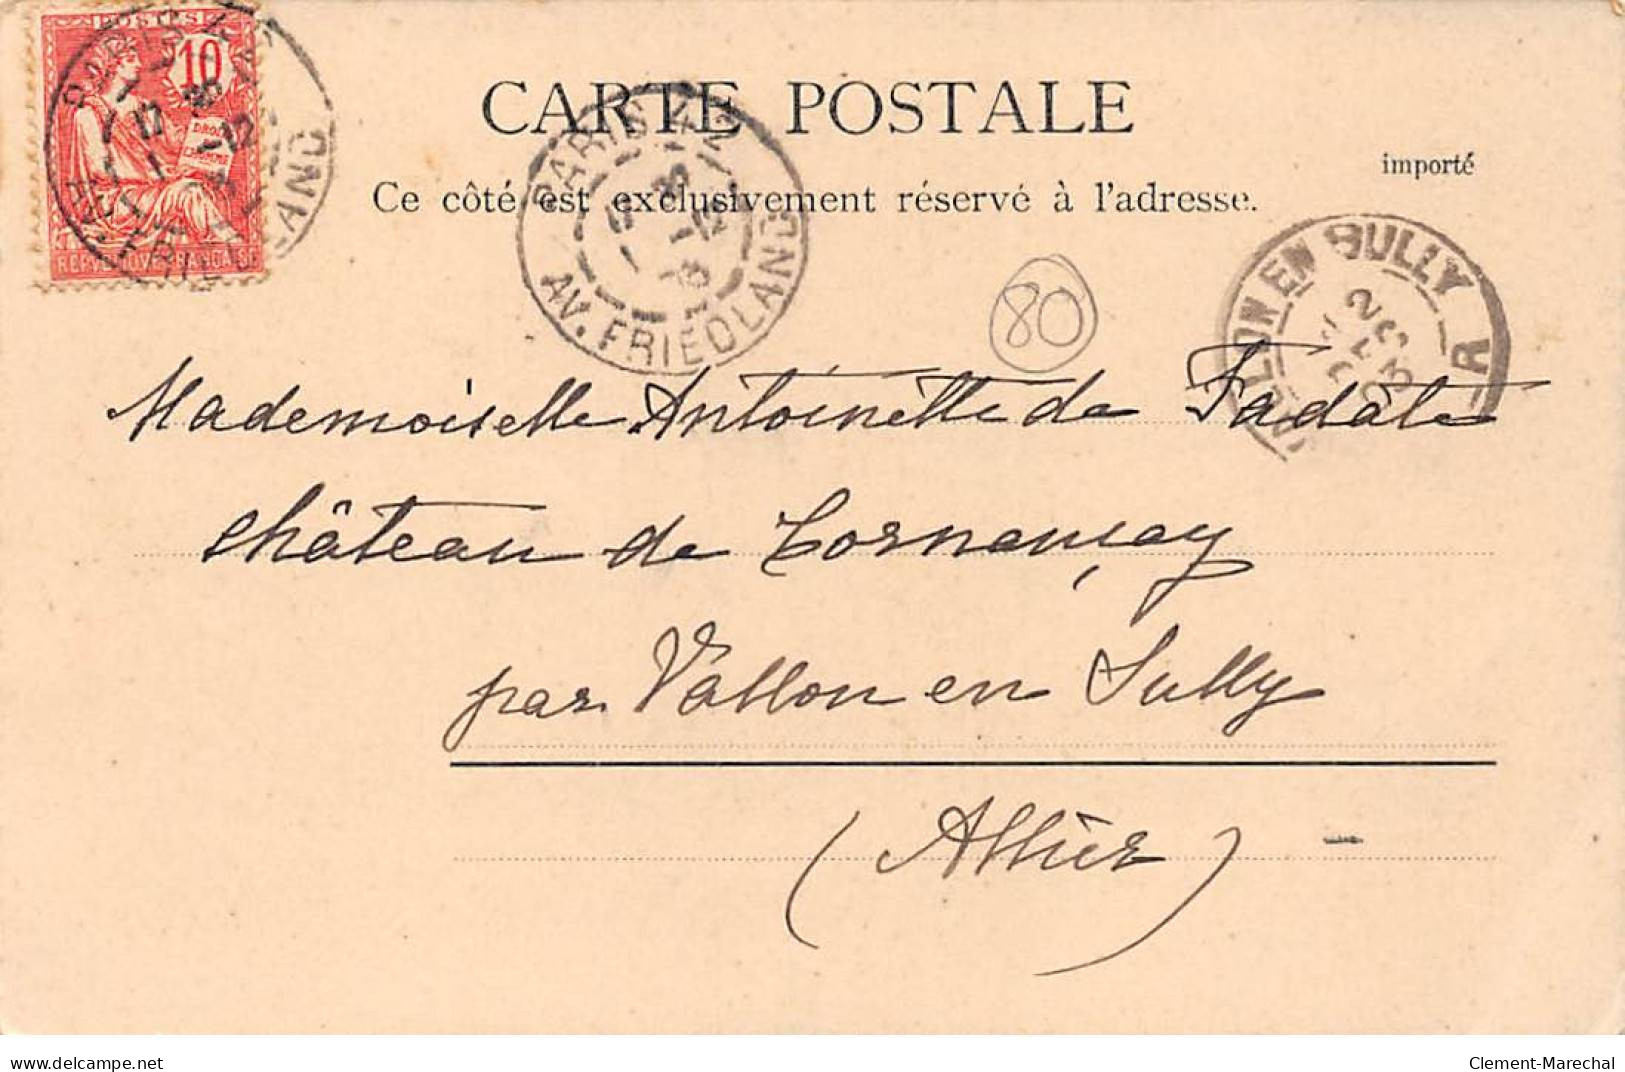 POSTES
10
DROITS
HOMME
REPUBLIQUE FRANCAISE
PARIS
AV. FRIEDLAND
CARTE POSTALE
importé
Ce côté est exclusivement réservé à l'adresse.
PARIS
1 -12
03
AV. FRIEDLAND
80
VALLON EN SULLY
2
DEC
03
Mademoiselle Antoinette de Fadate
château de Cornançay
par Vallon en Sully
(Allier)
delcampe.net
Clement-Marechal